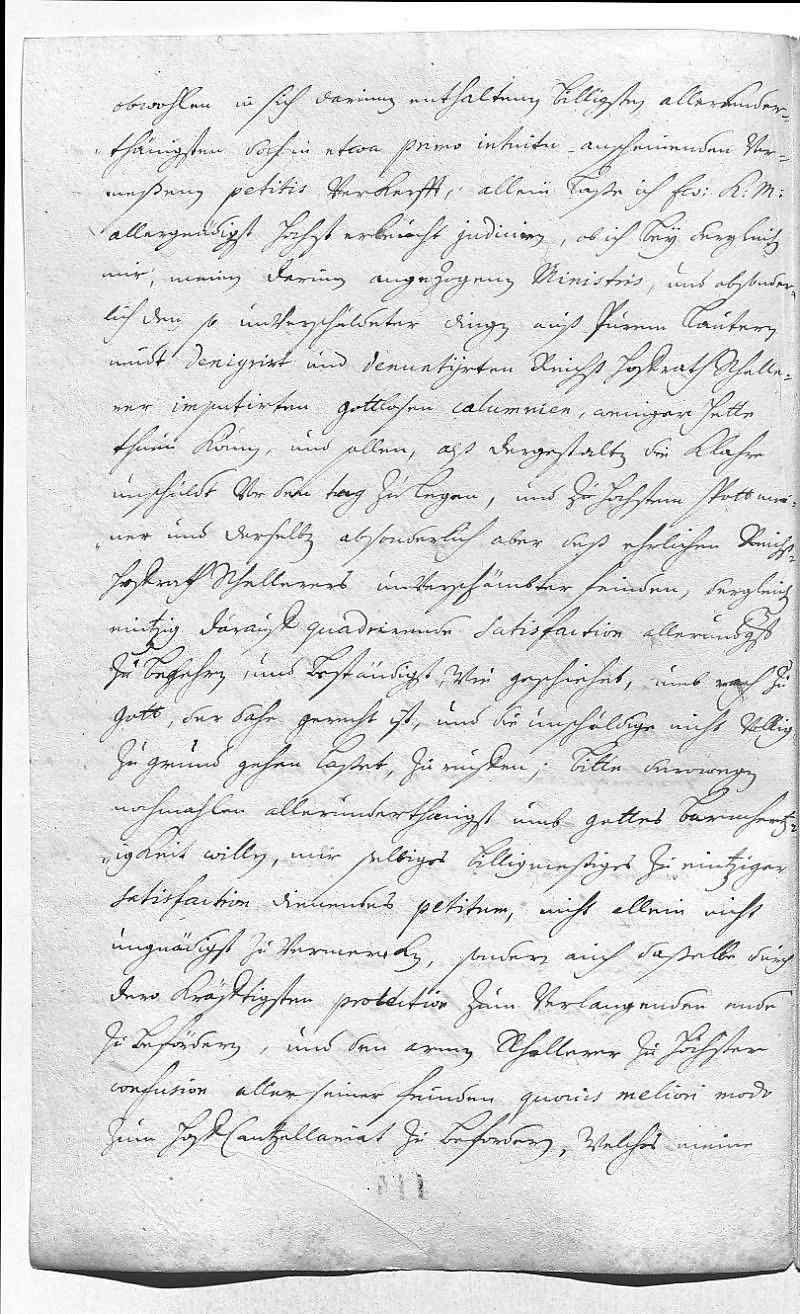 obwohlen in sich darinen enthaltenen billigsten allerunder-
thänigsten doch in etwa primo intuitu anscheinenden Ver-
meßenen petitis Verkerfft, allein laße ich Ew: K: M:
allergnädigst höchst erleücht judiciren, ob ich bey dergleich
mir, meinen darinn angezogenen Ministris, und absonder-
lich den so unverschuldeter dingen auß Purem lautern
neidt denigrirt und denuntijrten Reichß Hoffrath Schelle-
rer imputirten gottlosen calumnien, weniger hette
thuen können, und sollen, alß dergestalten die Klahre
unschuldt Vor den tag zu legen, und zu höchstem Spott mei-
ner und derselben absonderlich aber deß ehrlichen Reichß-
Hoffrath Schellerers unverschämbter feinden, dergleich
eintzig darauff quadrirende satisfaction allerundgst
zu begehren, und beständigst, wie geschiehet, umb rach zu
Gott, der dahe gerecht ist, und die unschuldige nicht Völlig
zu grund gehen laßet, zu rueffen; bitte derowegen
nochmahlen allerunderthänigst umb gottes barmhertz-
igkeit willen, mir selbiges billigmeßiges zu eintziger
satisfaction dienendes petitum, nicht allein nicht
ungnädigst zu Vermercken, sondern auch daßelbe durch
dero kräfftigsten protection zum Verlangenden ende
zu befördern, und den armen Schellerer zu höchster
confusion aller seiner feinden quovis meliori modo
zum Hoff Cantzellariat zu befordern, welches meine